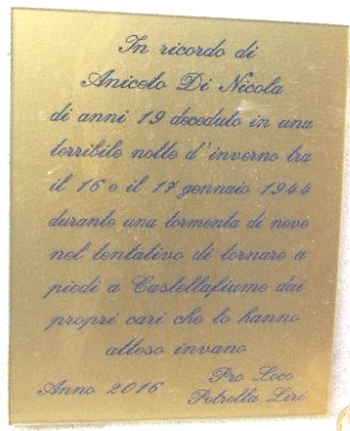 In ricordo di
Aniceto Di Nicola
di anni 19 deceduto in una
terribile notte d'inverno tra
il 16 e il 17 gennaio 1944
durante una tormenta di neve
nel tentativo di tornare a
piedi a Castellafiume dai
propri cari che lo hanno
atteso invano
Anno 2016
Pro Loco
Petrella Liri